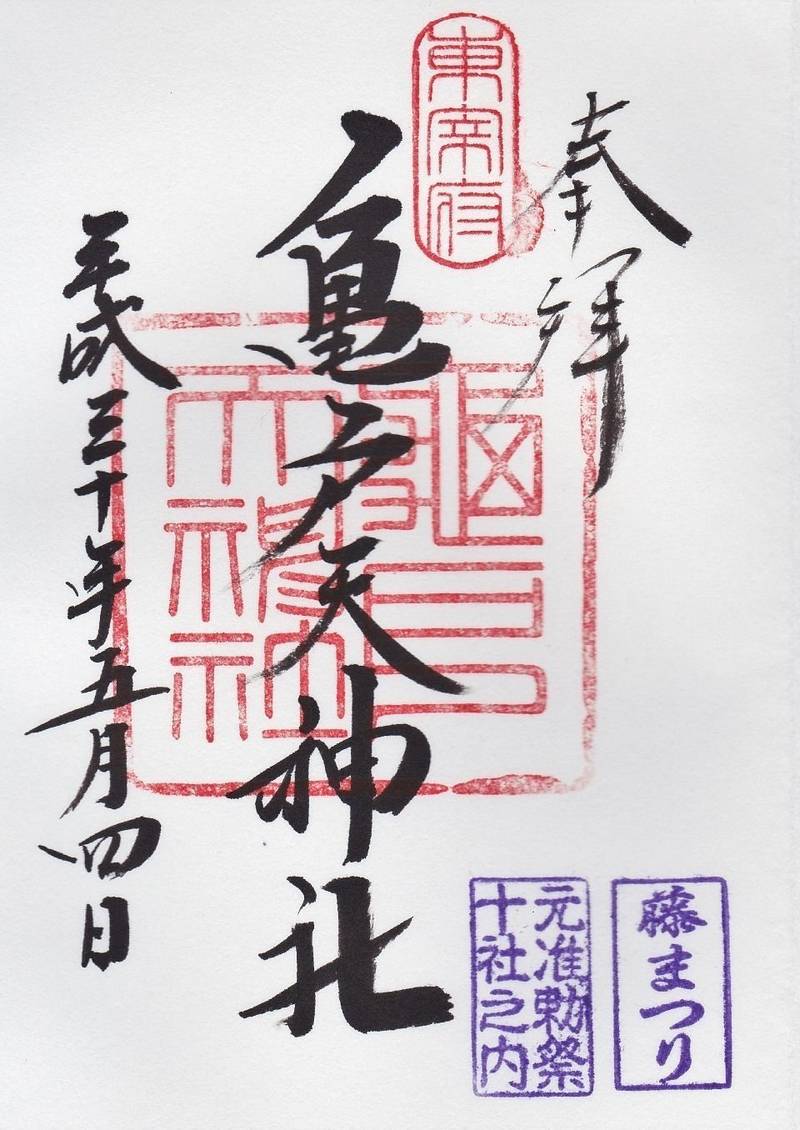 奉拝
東宰府
亀戸天神社
龜戸
天神社
平成三十年五月四日
藤まつり
元准勅祭
十社之内